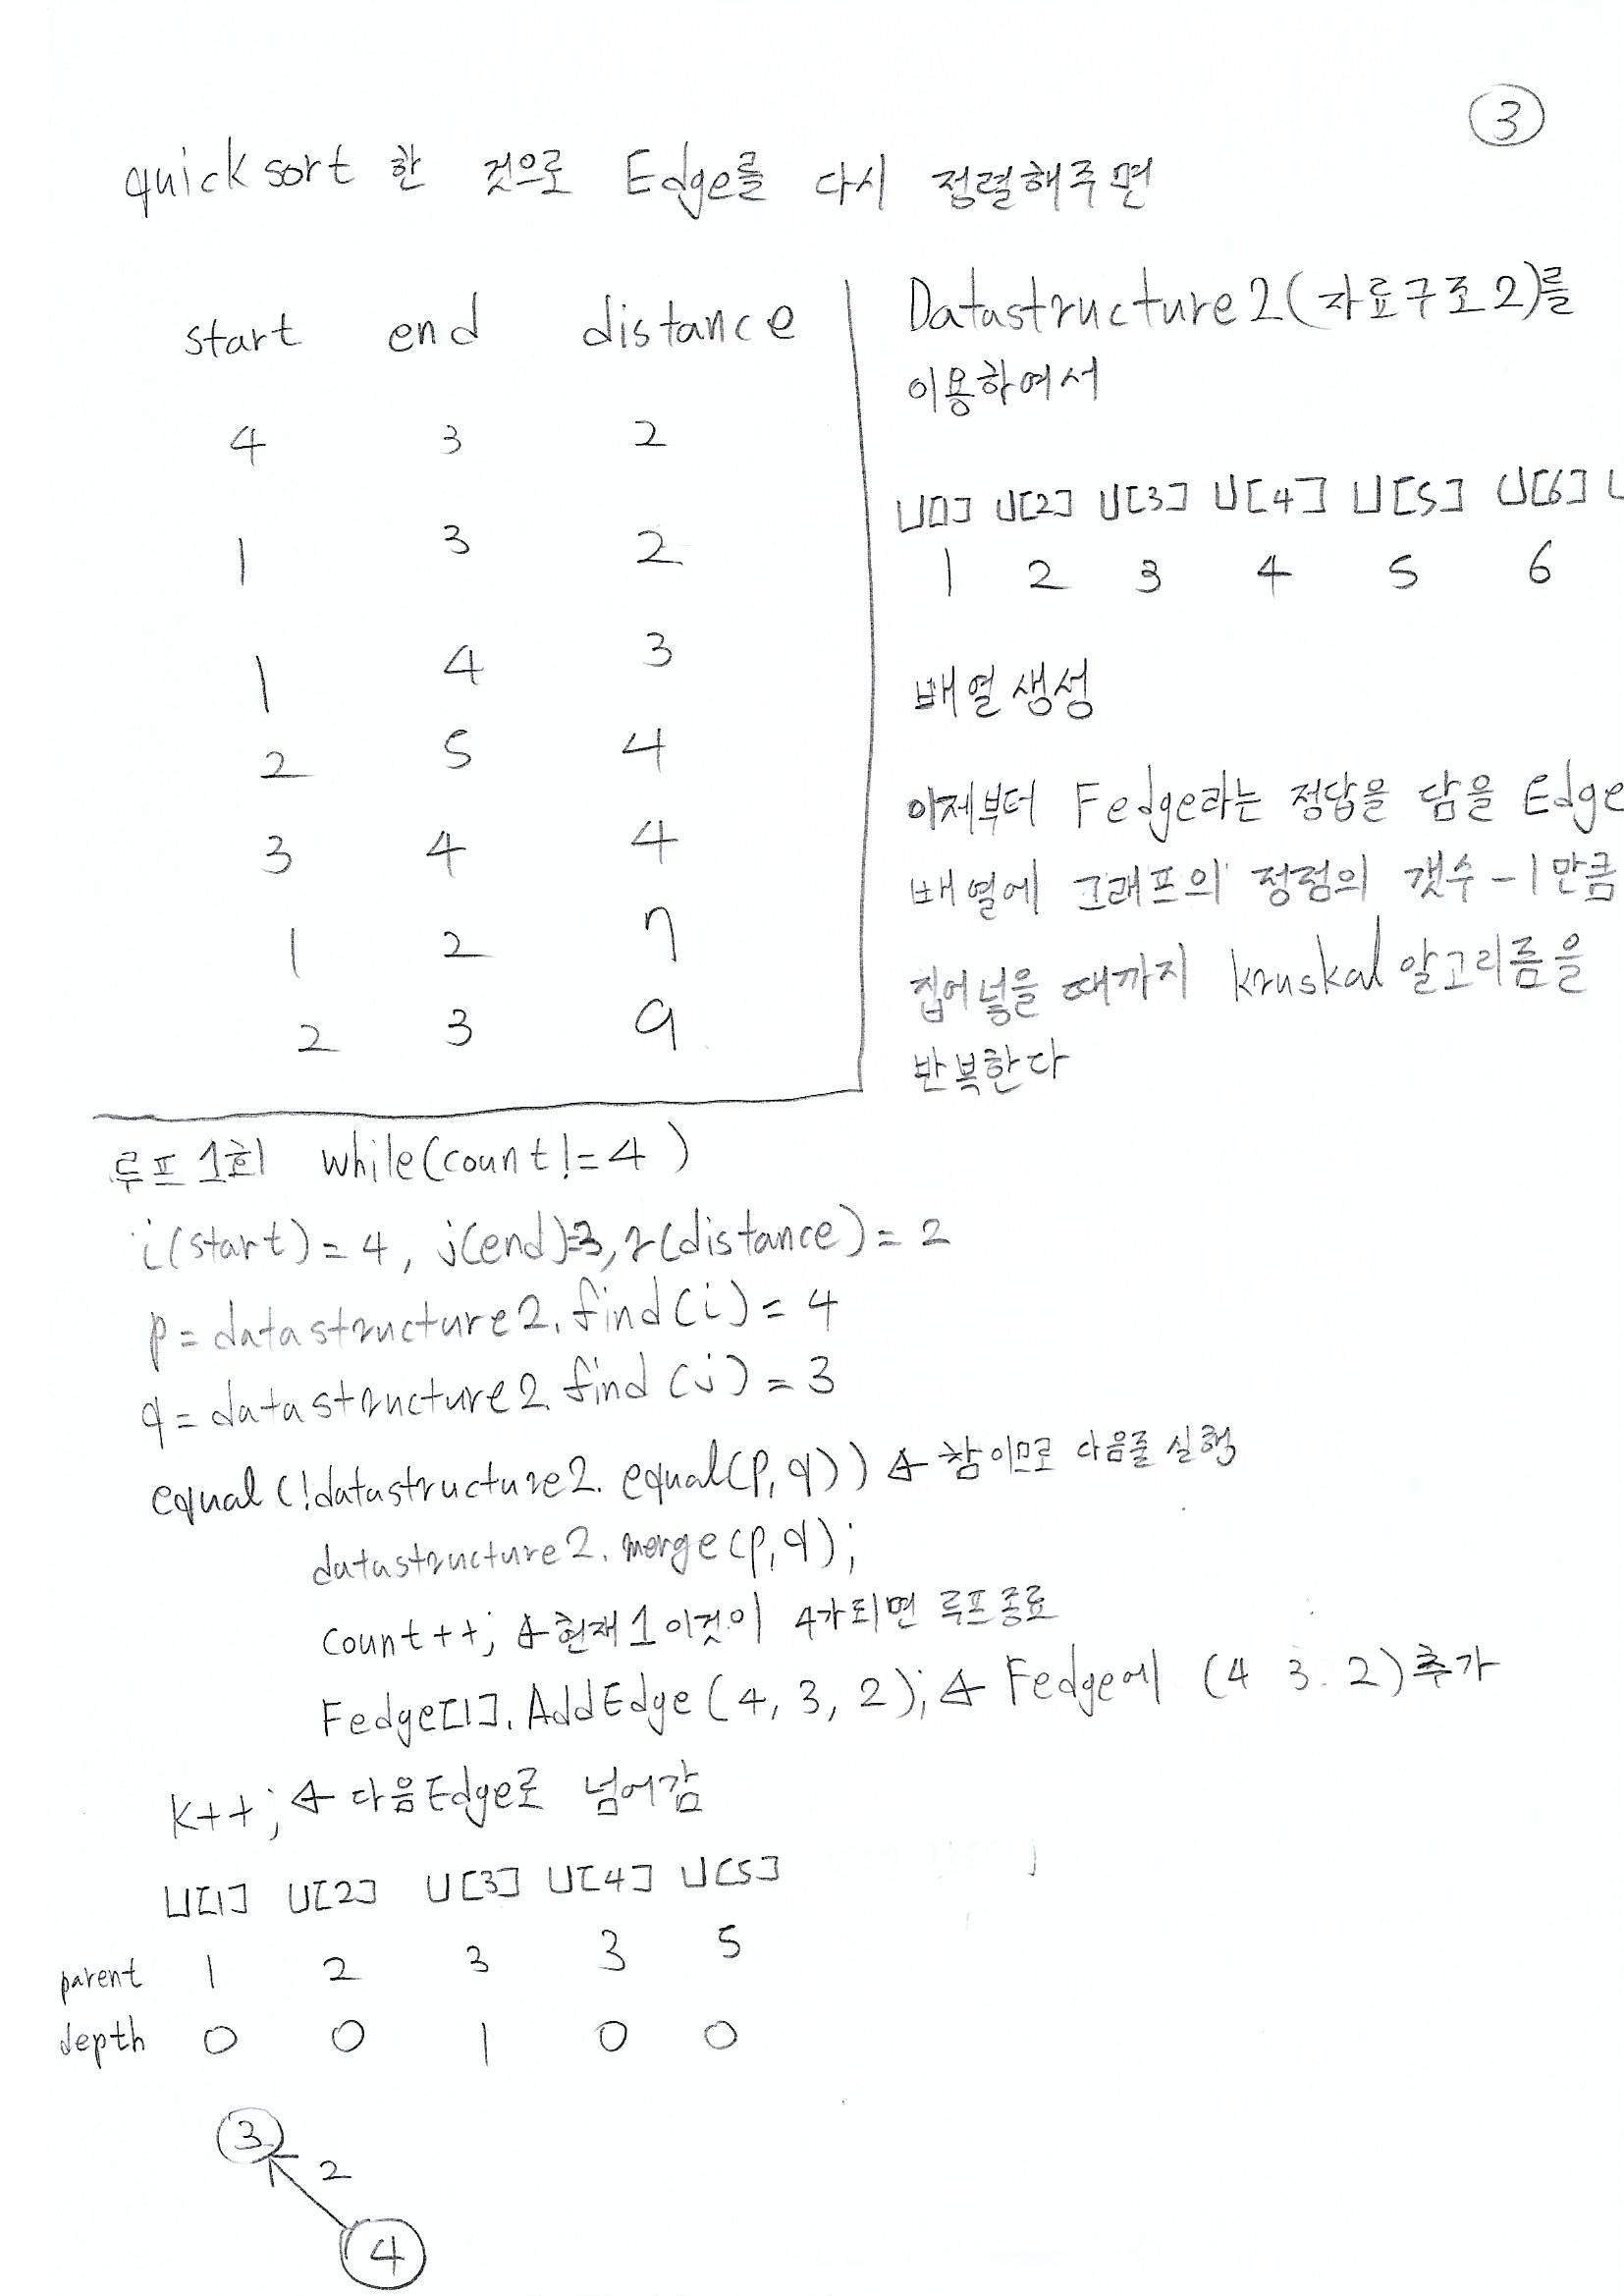 3
quicksort 한 것으로 Edge를 다시 정렬해주면
start end distance
4 3 2
1 3 2
1 4 3
2 5 4
3 4 4
1 2 7
2 3 9
Datastructure2(자료구조2)를
이용하여서
U[1] U[2] U[3] U[4] U[5] U[6] U
1 2 3 4 5 6
배열생성
이제부터 Fedge라는 정답을 담을 Edge
배열에 그래프의 정점의 갯수-1만큼
집어넣을 때까지 kruskal 알고리름을
반복한다
루프 1회 while(count!=4)
i(start)=4, j(end)=3, r(distance)=2
p=datastructure2.find(i)=4
q=datastructure2.find(j)=3
equal(!datastructure2.equal(p,q)) ← 참이므로 다음줄 실행
datastructure2.merge(p,q);
count++; ← 현재1 이것이 4가되면 루프종료
Fedge[1].AddEdge(4,3,2); ← Fedge에 (4 3.2)추가
k++; ← 다음Edge로 넘어감
U[1] U[2] U[3] U[4] U[5]
parent 1 2 3 3 5
depth 0 0 1 0 0
3
2
4